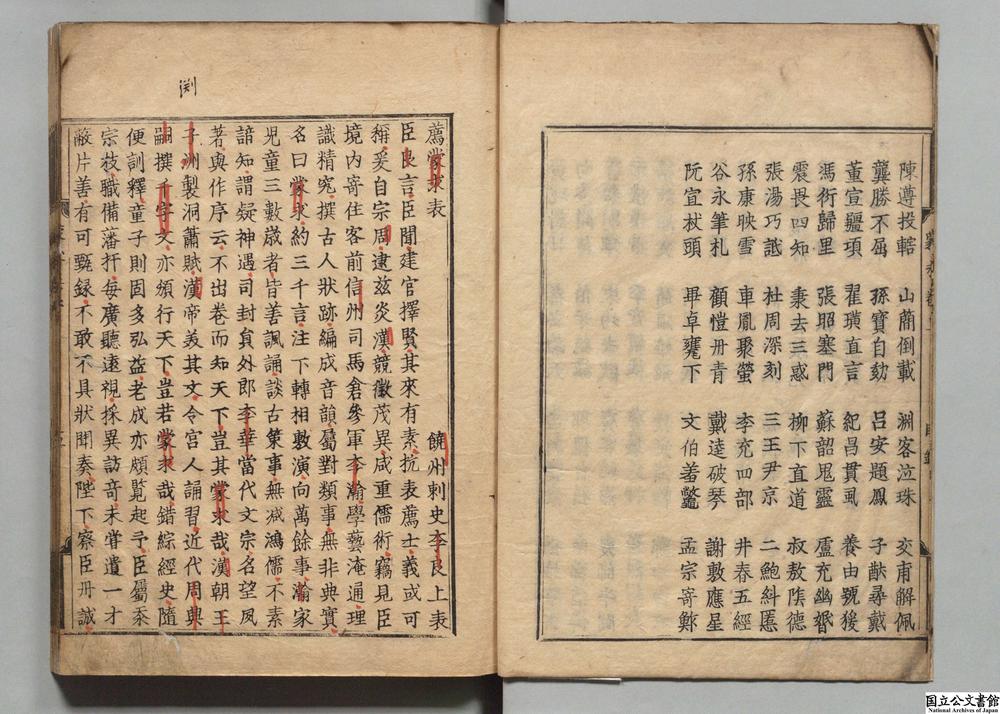 陳遵投轄 山蕑倒載 淵客泣珠 交甫解佩
龔勝不屈 孫寶自劾 呂安題鳳 子猷尋戴
董宣彊項 翟璜直言 紀昌貫虱 養由號猨
馮衍歸里 張照塞門 蘇韶鬼靈 盧充幽婚
震畏四知 秉去三惑 柳下直道 叔敖隂德
張湯巧詆 杜周深刻 三王尹京 二鮑糾慝
孫康映雪 車胤聚螢 李充四部 井春五經
谷永筆札 顧愷丹青 戴逵破琴 謝敷應星
阮宣杖頭 畢卓甕下 文伯羞鼈 孟宗寄鮓
渕
薦蒙求表 饒州刺史李良上表
臣良言臣聞建官擇賢其來有素抗表薦士義或可
稱爰自宗周逮兹炎漢競徵茂異咸重儒術竊見臣
境内寄住客前信州司馬倉參軍李瀚學藝淹通理
識精究撰古人狀跡編成音韻屬對類事無非典實
名曰蒙求約三千言注下轉相敷演向萬餘事瀚家
児童三數歲者皆善諷誦談古策事無减鴻儒不素
諳知謂疑神遇司封貟外郎李華當代文宗名望夙
著與作序云不出卷而知天下豈其蒙求哉漢朝王
子渊製洞簫賦漢帝美其文令宮人誦習近代周興
嗣撰千字文亦頒行天下豈若蒙求哉錯綜經史隨
便訓釋童子則固多弘益老成亦頗覧起予臣屬忝
宗枝職備藩扞每廣聽遠視採異訪奇未甞遺一才
蔽片善有可甄録不敢不具狀聞奏陛下察臣丹誠
国立公文書館
National Archives of Japan